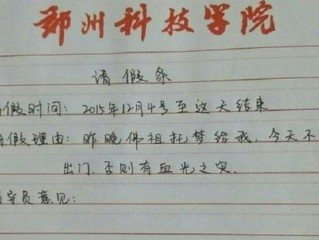 郑州科技学院
请假条
假时间：2015年12月4号至这天结束
假理由：昨晚佛祖托梦给我，今天不
出门，否则有血光之灾.
导员意见：